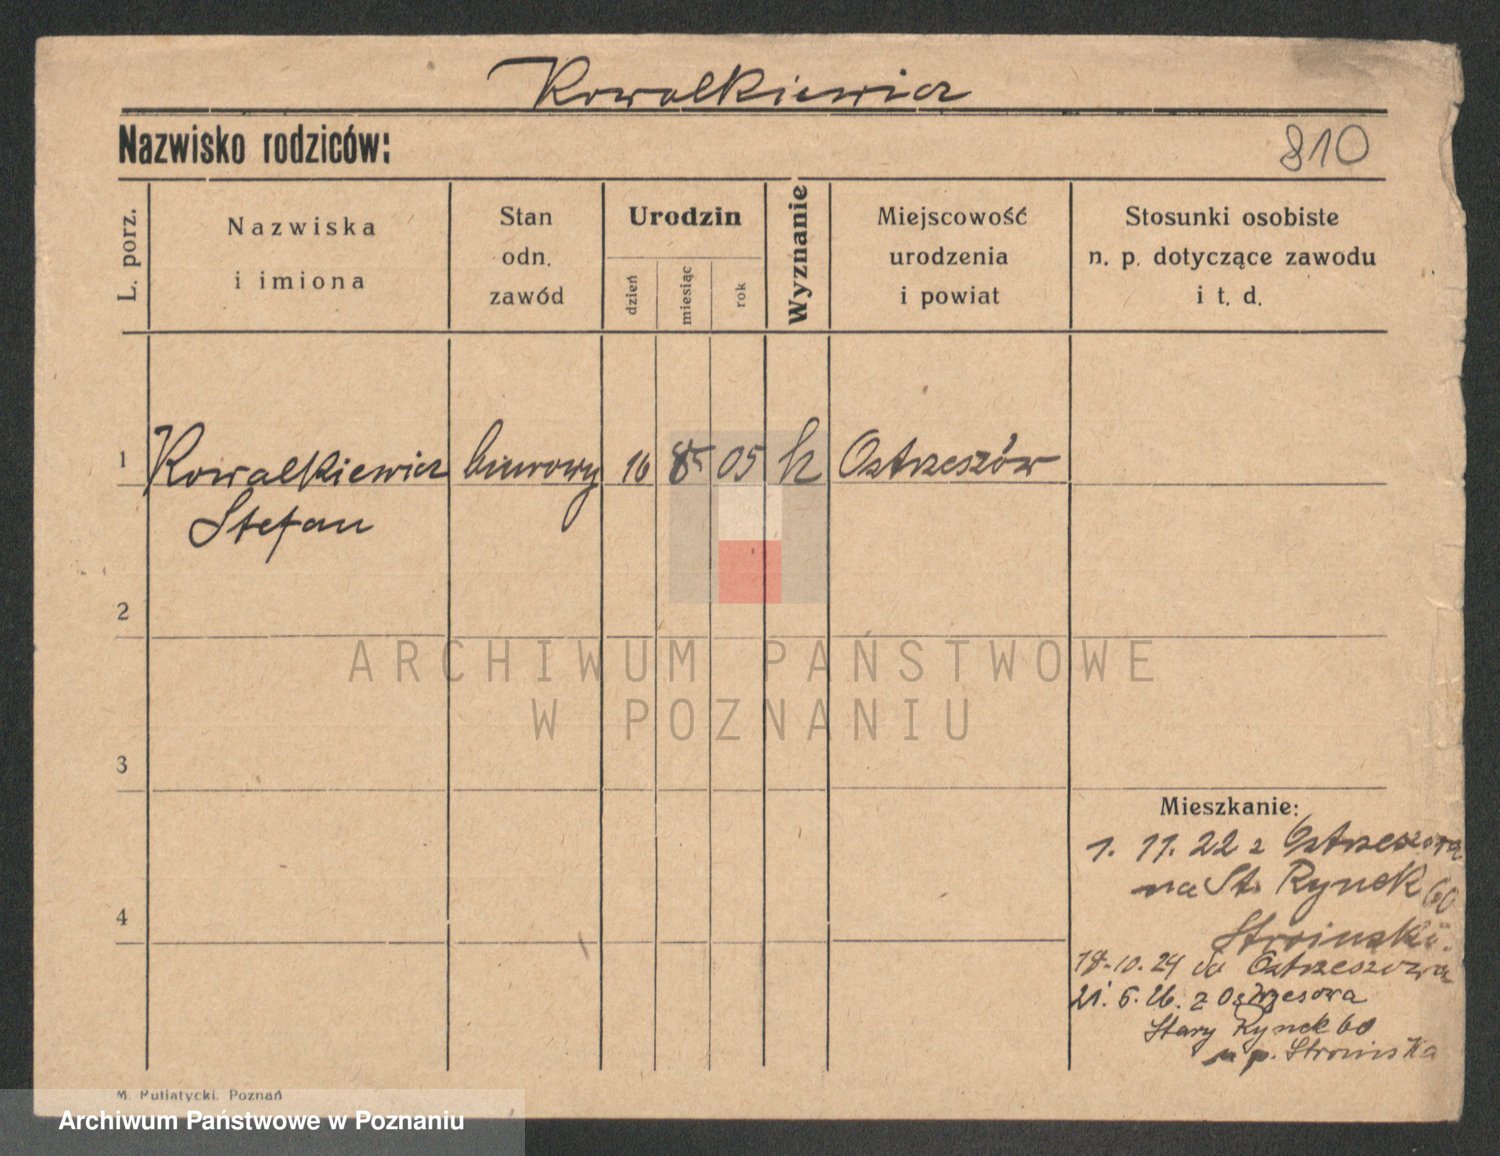 Kowalkiewicz
Nazwisko rodziców:
810
L. porz.
Nazwiska
i imiona
Stan
odn.
zawód
Urodzin
dzień
miesiąc
rok
Wyznanie
Miejscowość
urodzenia
i powiat
Stosunki osobiste
n. p. dotyczące zawodu
i t. d.
1 Kowalkiewicz biurowy 16 8 05 k Ostrzeszów
Stefan
2
3
4
Mieszkanie:
1. 11. 22 z Ostrzeszowa
na St. Rynek 60
Stroinski.
18-10. 24 do Ostrzeszowa
21. 6. 26. z Ostrzesowa
Stary Rynek 60
u p. Stroinska
M. Putiatycki. Poznań
ARCHIWUM PAŃSTWOWE
W POZNANIU
Archiwum Państwowe w Poznaniu